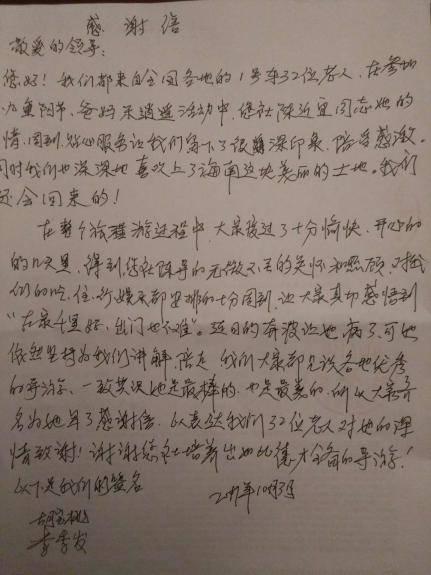 感谢信
敬爱的领导:
您好!我们都来自全国各地的1号车32位老人,在参加
九重阳节,爸妈来逍遥活动中,您社陈近宜同志她的
情,周到,贴心服务让我们留下了很深印象,陪受感激。
同时我们也深深地喜欢上了海南这块美丽的土地。我们
还会回来的!
在整个旅程游过程中,大家度过了十分愉快、开心的
的几天里,得到您社陈导的无微不至的关怀和照顾,对我
们的吃、住、行、娱乐都安排的十分周到,让大家真切感悟到
“在家千里好,出门也不难”。近日的奔波让她病了,可她
依然坚持为我们讲解,陪走 我们大家都见识各地优秀
的导游,一致共识她是最棒的,也是最美的,所以大家齐
名为她写了感谢信,以表达我们32位老人对她的深
情致谢!谢谢您社培养出如此德才全备的导游!
以下是我们的签名 2011年10月3号
胡宝桃
李秀发